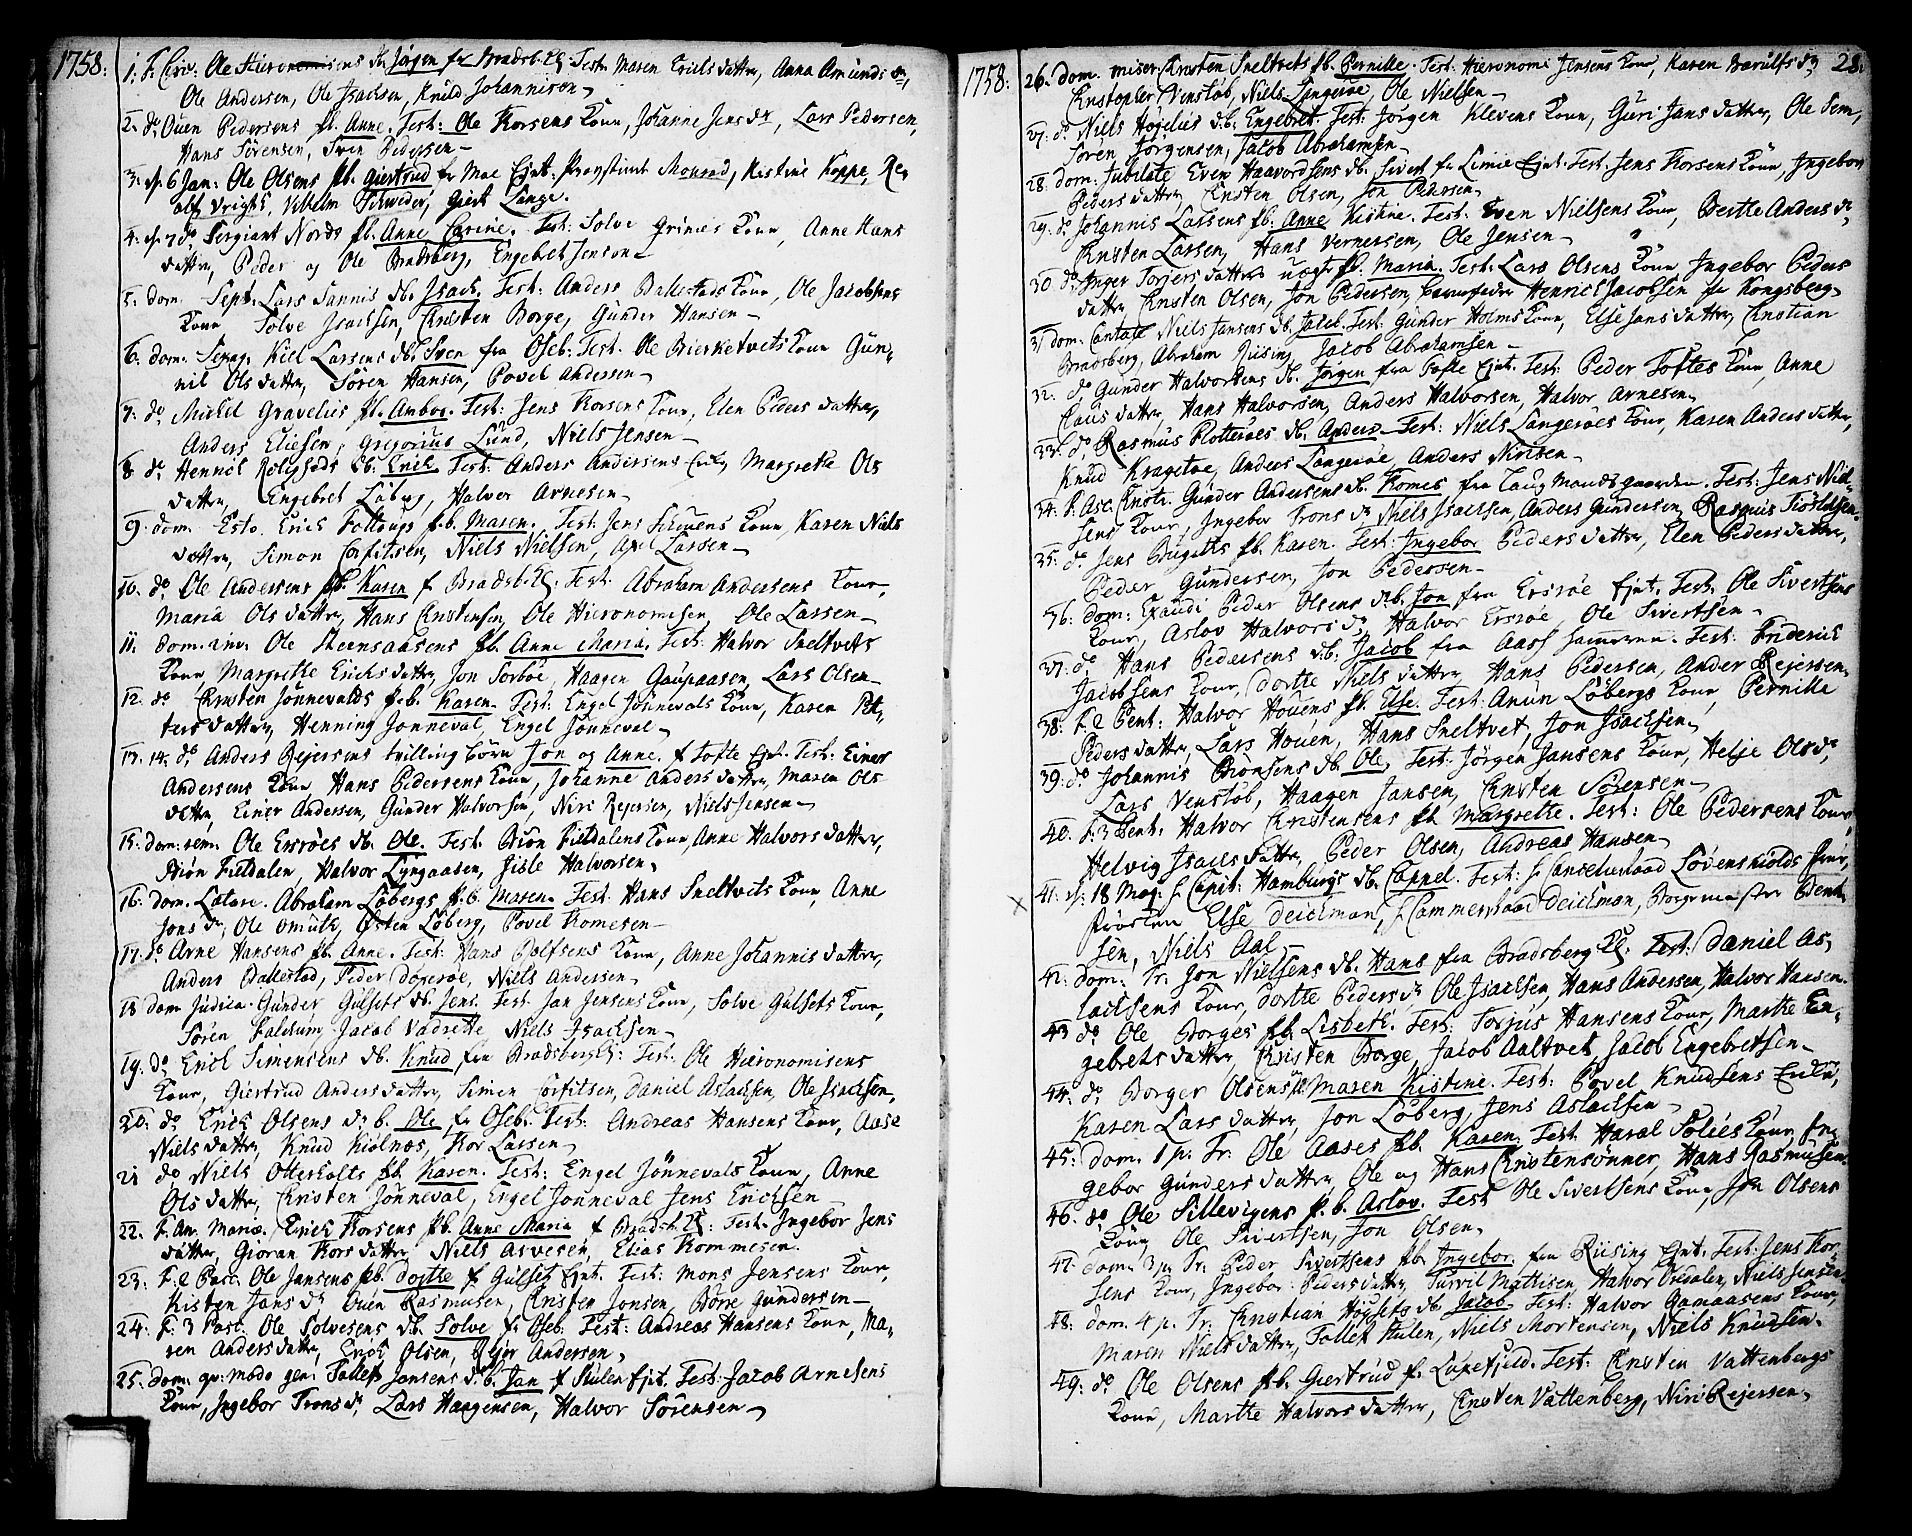 1758.
1. F. Circ. Ole Hieronomisens db. Jørgen fr Bradsb. Kl. Test. Maren Eriks datter, Anna Amunds dr,
Ole Andersen, Ole Isachsen, Knud Johannisen
2. do Ouen Pedersens fb. Anne. Test: Ole Korsens Kone, Johanne Jens dr, Lars Pedersen,
Hans Sørensen, Sven Pedersen
3. sp. 6 Jan: Ole Olsens fb. Giertrud fr Mae Ejnt. Monrad, Kistine Koppe, Re-
alf Vright, Vilhelm Schweder, Giert Lange.
4. sp. 7 do Sergiant Nords fb. Anne Carine. Test: Solve Grinies Kone, Anne Hans
datter, Peder og Ole Bradsberg, Engebret Jenson
5. dom. Sept. Lars Sannis db. Isach. Test: Anders Ballestads Kone, Ole Jacobsens
Kone Solve Isachsen, Christen Borge, Gunder Hansen
6. dom. Sexag. Kiel Larsens db. Sven fra Oseb. Test. Ole Bierketvets Kone Gun-
nil Ols datter, Søren Hansen, Povel Andersen
7. do Mickel Gravelies fb. Ambor. Test: Jens Korsens Kone, Elen Peders datter,
Anders Eliesen, Gregorius Lund, Niels Jensen
8 do Henrich Roligheds db. Erich Test: Anders Andersens Enke, Margrethe Ols
datter, Engebret Løberg, Halvor Arnesen
9. dom. Esto. Erich Follaugs fb. Maren. Test: Jens Kone, Karen Niels
datter, Simon Corfitsen, Niels Nielsen, Axel Larsen
10. do Ole Andersens fb. Karen f Bradsb. Kl. Test: Abraham Andersens Kone,
Maria Ols datter, Hans Christensen, Ole Hieronomisen, Ole Larsen
11. dom. inv. Ole Steensaasens fb. Anne Maria. Test: Halvor Sneltvets
Kone, Margrethe Erichs datter, Jon Sorbøe, Haagen Gaupaasen, Lars Olsen
12. do Christen Jønnevalds fb. Karen. Test: Engel Jønnevals Kone, Karen Pet-
ters datter, Henning Jønneval, Engel Jønneval
13. 14. do Anders Rejersens tvilling børn Jon og Anne. f Tofte Ejnt. Test: Einer
Andersens Kone, Hans Pedersens Kone, Johanne Anders datter, Maren Ols
datter, Einer Andersen, Gunder Halvorsen, Niri Rejersen, Niels Jensen
15. dom: rem. Ole Ersrøes db. Ole. Test. Biøn Fieldalens Kone, Anne Halvors datter,
Biøn Fieldalen, Halvor Lyngaasen, Gisle Halvorsen.
16. dom. Lætare. Abraham Løbergs fb. Maren. Test Hans Sneltvets Kone, Anne
Jons dr, Ole Omutk, Østen Løberg, Povel Komesen
17. do Arne Hansens fb. Anne. Test: Hans Rolfsens Kone, Anne Johannis datter,
Anders Ballestad, Peder Døgerøe, Niels Andersen
18 dom Judica. Gunder Gulsets db. Jens. Test. Jan Jensens Kone, Solve Gulsets Kone,
Søren Faldsum, Jacob Vadrette Niels Isachsen
19. do Erich Simensens db. Knud fra Bradsberg Kl: Test. Ole Hieronomisens
Kone, Giertrud Anders datter, Simen Corfitsen, Daniel Aslachsen, Ole Isachsen,
20. do Erich Olsens d: b. Ole fr Oseb. Test: Andreas Hansens Kone, Aase
Niels datter, Knud Kiølnæs, Kor Larsen
21 do Niels Otterholts fb. Karen. Test: Engel Jønnevals Kone, Anne
Ols datter, Christen Jønneval, Engel Jønneval Jens Erichsen
22. F. An. Mariæ. Erich Korsens fb. Anne Maria f Bradsb. Kl: Test. Ingebor Jens
datter, Gioran Kors datter Niels Arvesen, Elias Kommesen.
23. F. 2 Pasc. Ole Jansens fb. Dorthe f Gulset Ejnt. Test: Mons Jensens Kone,
Kisten Jans dr Ouen Rasmusen, Christen Jonsen, Børre Gundersen
24. F. 3 Pasc. Ole Solvesens db. Solve fr Oseb. Test: Andreas Hansens Kone, Ma-
ren Anders datter, Erich Olsen, Andersen,
25. dom: qv: modo gen: Tollefs Jansens d: b. Jan f Stulen Ejnt. Test: Jacob Arnesens
Kone, Ingebor Trons dr, Lars Haagensen, Halvor Sørensen
1758.
28.
26. dom. miser: Christen Sneltvets fb. Pernille. Test: Hieronomi Jensens Kone, Karen Barulfs dr
Christopher Venstøb, Niels Langerøe, Ole Nielsen
27. do Niels Høgelies d:b. Engebret. Test: Jørgen Klevens Kone, Guri Jans datter, Ole Sem,
Søren Jørgensen, Jacob Abrahamsen
28. dom: Jubilate Even Haavordsens db. Sivert fr Limie Ejnt. Test. Jens Korsens Kone, Ingebor
Peders datter, Christen Olsen, Jon Pedersen
29. do Johannis Larsens fb. Anne Kistine. Test: Even Nielsens Kone, Berthe Anders dr,
Christen Larsen, Hans Vernersen, Ole Jensen
30. do Inger Torjers datters uægte fb. Maria. Test: Lars Olsens Kone, Ingebor Peders
datter, Christen Olsen, Jon Pedersen, barnefader Henrich Jacobsen fra Kongsberg
31 dom. Cantate Niels Jansens db. Jacob. Test. Gunder Holms Kone, Else Jans datter, Christian
Bradsberg, Abraham Riising, Jacob Abrahamsen
32. do Gunder Halvorsens db. Jørgen fra Tofte Ejnt. Test: Peder Toftes Kone, Anne
Claus datter, Hans Halvorsen, Anders Halvorsen, Halvor Arnesen
33. do Rasmus Flotterøes db. Anders. Test: Niels Langerøes Kone, Karen Anders datter,
Knud Kragerøe, Anders Langerøe, Anders Nirisen
34. F. Asc. Christi. Gunder Andersens db. Komes fra Laugmandsgaarden. Test: Jens Niel-
sens Kone, Ingebor Trons dr Niels Isachsen, Anders Gundersen, Rasmus Kioldsen
35. do Jens Bugetts fb. Karen. Test: Ingebor Peders datter, Elen Peders datter,
Peder Gundersen, Jon Pedersen
36. dom: Exaudi Peder Olsens d:b. Jon fra Ersrøe Ejnt. Test. Ole Sivertsens
Kone, Aslov Halvors dr, Halvor Ersrøe, Ole Sivertsen
37. do Hans Pedersens db. Jacob fra Aass. Test: Friderich
Jacobsens Kone, Dorthe Niels datter, Hans Pedersen, Ander Rejersen
38. F. 2 Pent: Halvor Houens fb. Else. Test: Anun Løbergs Kone, Pernille
Peders datter, Lars Houen, Hans Sneltvet, Jon Isachsen
39. do Johannis Biønsens db. Ole. Test: Jørgen Jansens Kone, Helje Ols dr,
Lars Venstøb, Haagen Jansen, Christen Sørensen
40. F. 3 Pent: Halvor Christensens fb. Margrethe. Test: Ole Pedersens Kone,
Helvig Isachs datter, Peder Olsen, Andreas Hansen
41. sp: 18 Maj: H Capit: Hamburgs db. Cappel. Test: H Cancelieraad Løvenskiolds frue,
frøken Else Deichman, H Cammerraad Deichman, Borgemester Bent-
sen, Niels Aal
42. dom: Tr. Jon Nielsens db. Hans fra Bradsberg Kl: Test: Daniel As-
lachsens Kone, Dorthe Peders dr, Ole Isachsen, Hans Andersen, Halvor Hansen
43 do Ole Borges fb. Lisbeth. Test: Torjus Hansens Kone, Marthe En-
gebrets datter, Christen Borge, Jacob Aaltvet, Jacob Engebretsen
44. do Borger Olsens fb: Maren Kistene. Test: Povel Knudsens Enke,
Karen Lars datter, Jon Løberg, Jens Aslachsen
45. dom. 1 p: Tr: Ole Aases fb. Karen. Test. Haral Solies Kone, In-
gebor Gunders datter, Ole og Hans Christensønner, Hans Rasmusen
46. do Ole Sillevigens f. b. Aslov. Test Ole Sivertsens Kone, Jon Olsens
Kone, Ole Sivertsen, Jon Olsen.
47. dom. 3 p. Tr. Peder Sivertsens fb. Ingebor. fra Riising Ejnt. Test: Jens Kor-
sens Kone, Ingebor Peders datter, Torvil Mattisen, Halvor Bredalen, Niels Jensen
48. dom. 4 p. Tr. Christian Høysets db. Jacob. Test: Halvor Gamaasens Kone,
Maren Niels datter, Tollef Stulen, Niels Mortensen, Niels Knudsen
49. do Ole Olsens fb. Giertrud fr. Luxefjeld. Test: Christen Vattenbergs
Kone, Marthe Halvors datter, Christen Vattenberg, Niri Rejersen